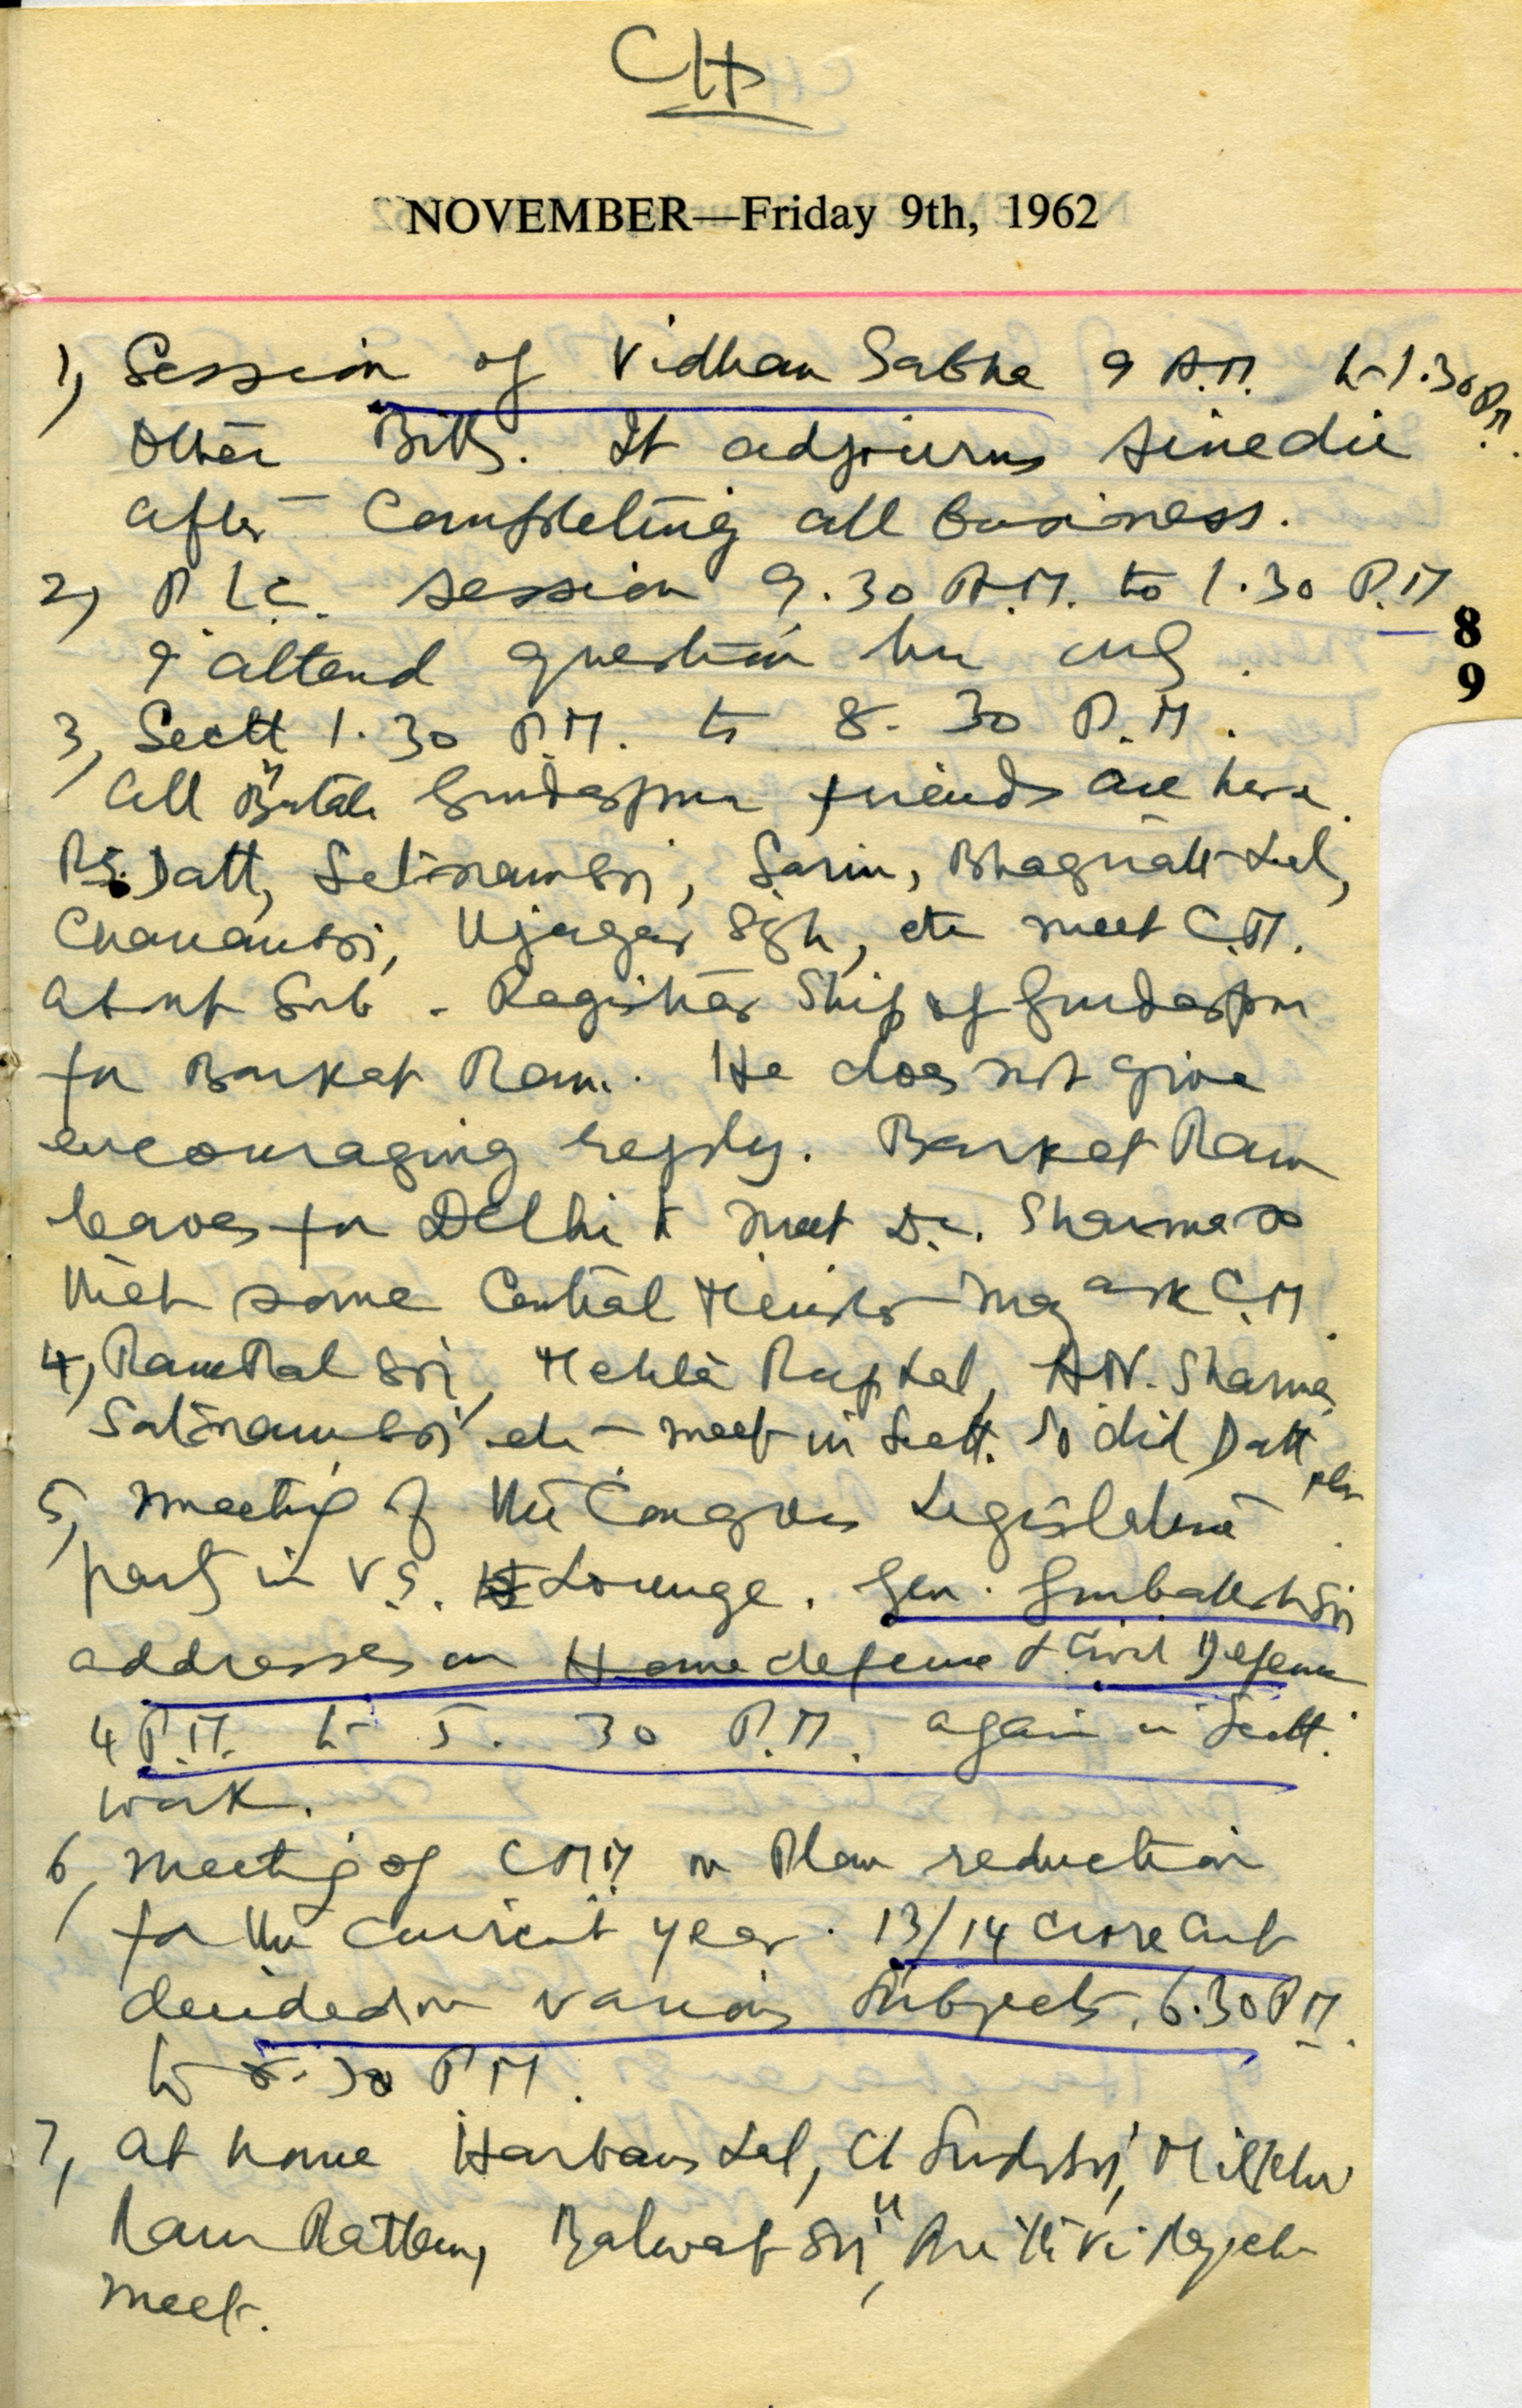 CH
NOVEMBER—Friday 9th, 1962
1) Session of Vidhan Sabha 9 A.M. to 1.30 P.M.
Other Bills. It adjourns sinedie
after completing all business.
2) P.L.C. session 9.30 A.M. to 1.30 P.M
I attend question hr only.
8
9
3) Sectt 1.30 P.M. to 8.30 P.M.
All Batala Gurdaspur friends are here.
Datt, Satnam Sri, Sarin, Bhagnatt Lal,
Chanan Sri, Ujagar Sgh, etc meet C.M.
about Sub-Registrar Ship of Gurdaspur
for Barkat Ram. He does not give
encouraging reply. Barkat Ram
leaves for Delhi to meet D.C. Sharma so
that some Central Minister may ask C.M.
4) Ram Pal Sri, Mehta Rup Lal, A.N. Sharma,
Satnam Sri etc meet in Sectt. So did Datt
5) Meeting of the Congress Legislature
party in V.S. Lounge. Gen. Gurbakhsh Sri
addresses on Home defence & Civil Defence
4 P.M. to 5.30 P.M. again in Sectt.
work.
6) Meeting of CMM on Plan reduction
for the current year. 13/14 Crore cut
decided on various Subjects. 6.30 P.M.
to 8.30 P.M.
7) At home Harbans Lal, Ch
Ram Rattan, Balwat Sri,
meet.